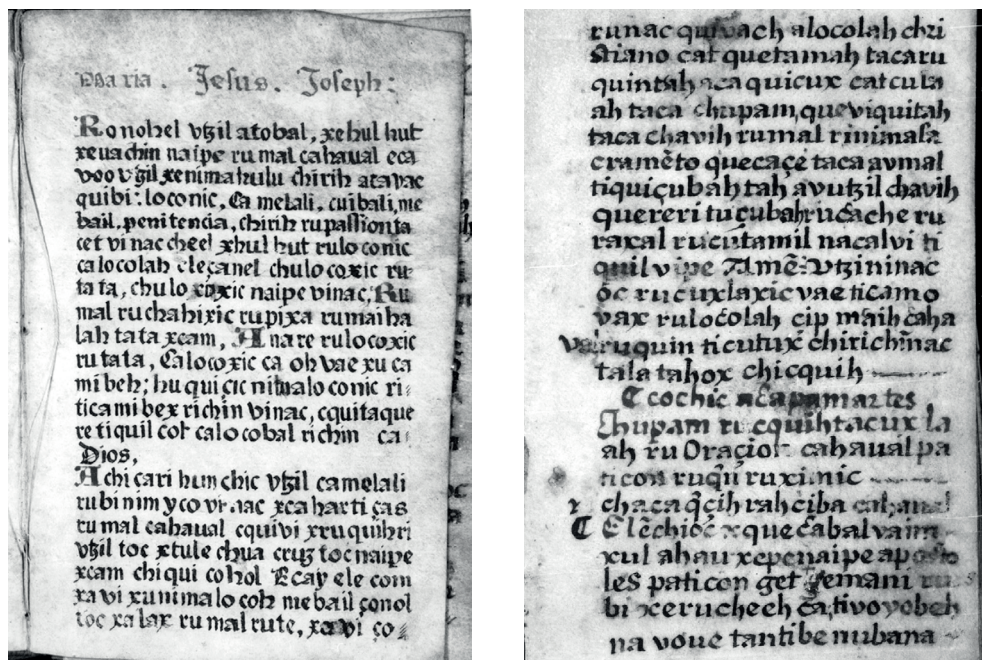 Maria. Jesus. Joseph:
Ronohel vtzil atobal, xehul hut
xeuachin naipe rumal cahaual eca
voo vtzil xenimahulu chirih atavac
quibi: loconic, Ca melali, cuibali, me
bail, penitencia, chirih rupassionta
cet vinac cheel xhul hut rulo conic
calocolah eleçanel chulocoxic ru
tata, chulo xic naipe vinac, Ru
mal ruchahixic rupixa rumaiha
lah tata xcam, Anare rulocoxic
rutata, Calocoxic ca oh vae xu ca
mibeh; huquiçic loconic ri
ticamibex richin vinac, cquitaque
re tiquil coh calocobal richin ca
Dios,
Achi cari hun chic vtzil camelali
rubinim yco vinac xcahartiças
rumal cahaual cquivi xruquihri
vtzil toc xtule chua cruz toc naipe
xcam chiqui cohol Ecay ele com
xavi xunimalo coh mebail çonol
toc xalax rumal rute, xavi ço
runac quivach alocolah chri
stiano cat quetamah tacaru
quintah aca quicux catcula
ah taca chupam, que viquitah
taca chavih rumal rinimasa
cramēto quecaçe taca avmal
tiquiçubah tah avutzil chavih
quereri tuçubah rucache ru
raxal rucutamil nacalvi ti
quil vipe Amē: Vtzininac
oc rucuxlaxic vae ticamo
vax rulocolah cip maih caha
val ruquin ticutux chirichinac
tala tahox chicquih
cochic acapa martes
Chupam ri cquihtacux la
ah ru Oraçio cahaual pa
ticon ruqui ruximic
chacaqcih rah ciba cahaual
Elēchioc xquecabal vaim
xul ahau xepenaipe aposto
les paticon get Semani ru
bi xeruchech ca, tivoyobeh
na voue tantibe nubana